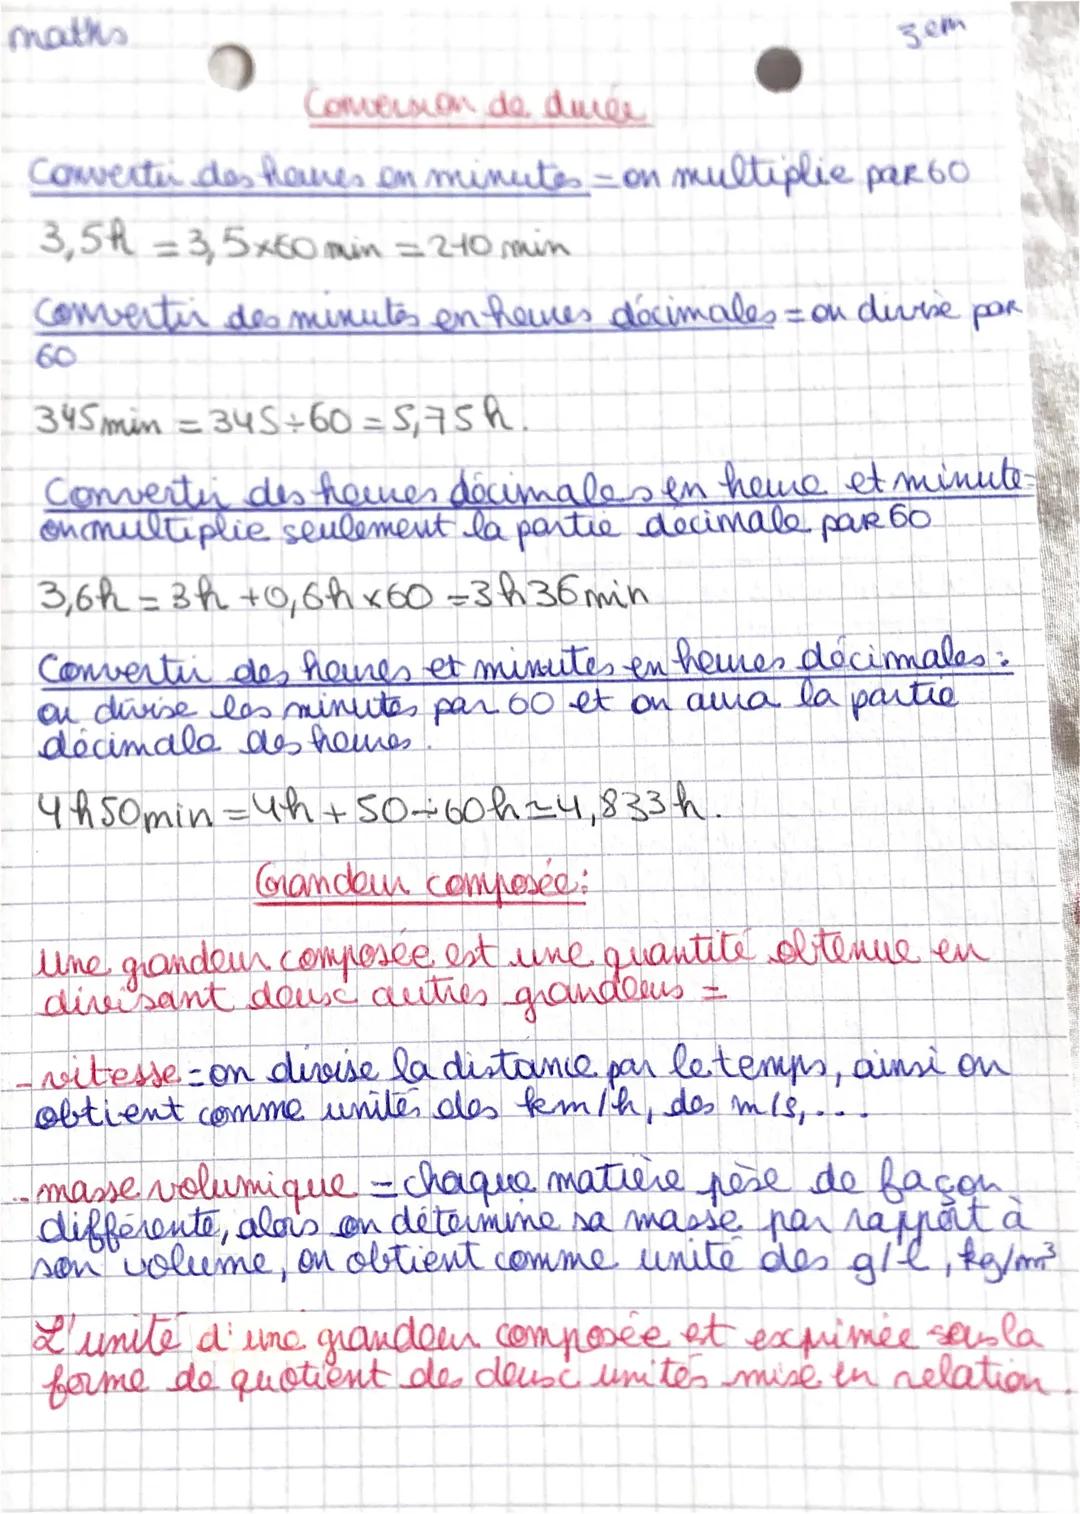 maths
3em
Conversion de durée
Convertir des heures en minutes = on multiplie par 60
3,5h = 3,5×60 min = 210 min
Convertir des minutes en heures décimales = on divise par
60
345 min = 345÷60 = 5,75h.
Convertir des heures décimales en heure et minute =
on multiplie seulement la partie décimale par 60
3,6h = 3h +0,6h ×60 = 3h36min
Convertir des heures et minutes en heures décimales :
on divise les minutes par 60 et on aura la partie
décimale des heures.
4h50min = 4h + 50÷60h ≃ 4,833h.
Grandeur composée :
Une grandeur composée est une quantité obtenue en
divisant deux autres grandeurs =
- vitesse = on divise la distance par le temps, ainsi on
obtient comme unités des km/h, des m/s, ...
- masse volumique = chaque matière pèse de façon
différente, alors on détermine sa masse par rapport à
son volume, on obtient comme unité des g/l, kg/m³
L'unité d'une grandeur composée et exprimée sous la
forme de quotient des deux unités mise en relation.